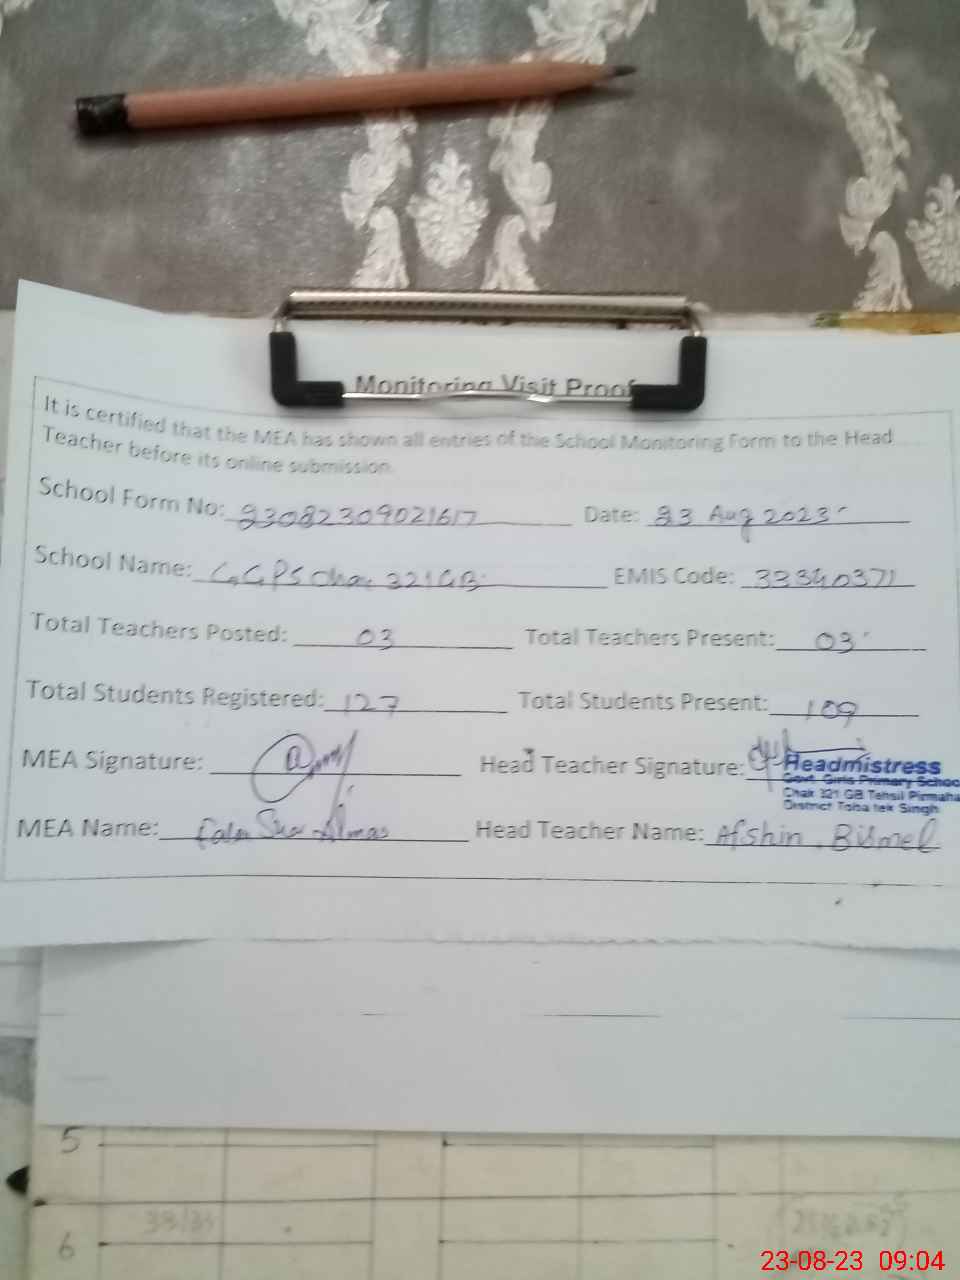 Monitoring Visit Proof
It is certified that the MEA has shown all entries of the School Monitoring Form to the Head
Teacher before its online submission.
School Form No: 23082309021617 Date: 23 Aug 2023
School Name: GGPS Chak 321 GB EMIS Code: 33340371
Total Teachers Posted: 03 Total Teachers Present: 03
Total Students Registered: 127 Total Students Present: 109
MEA Signature: Head Teacher Signature:
Headmistress
Govt. Girls Primary School
Chak 321 GB Tehsil Pirmahal
District Toba tek Singh
MEA Name: Almas Head Teacher Name: Afshin Bismel
5
6
23-08-23 09:04